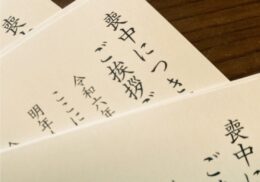 喪中につき
ご挨拶ご
令和六年
ここに
明年
喪中に
ご
喪中